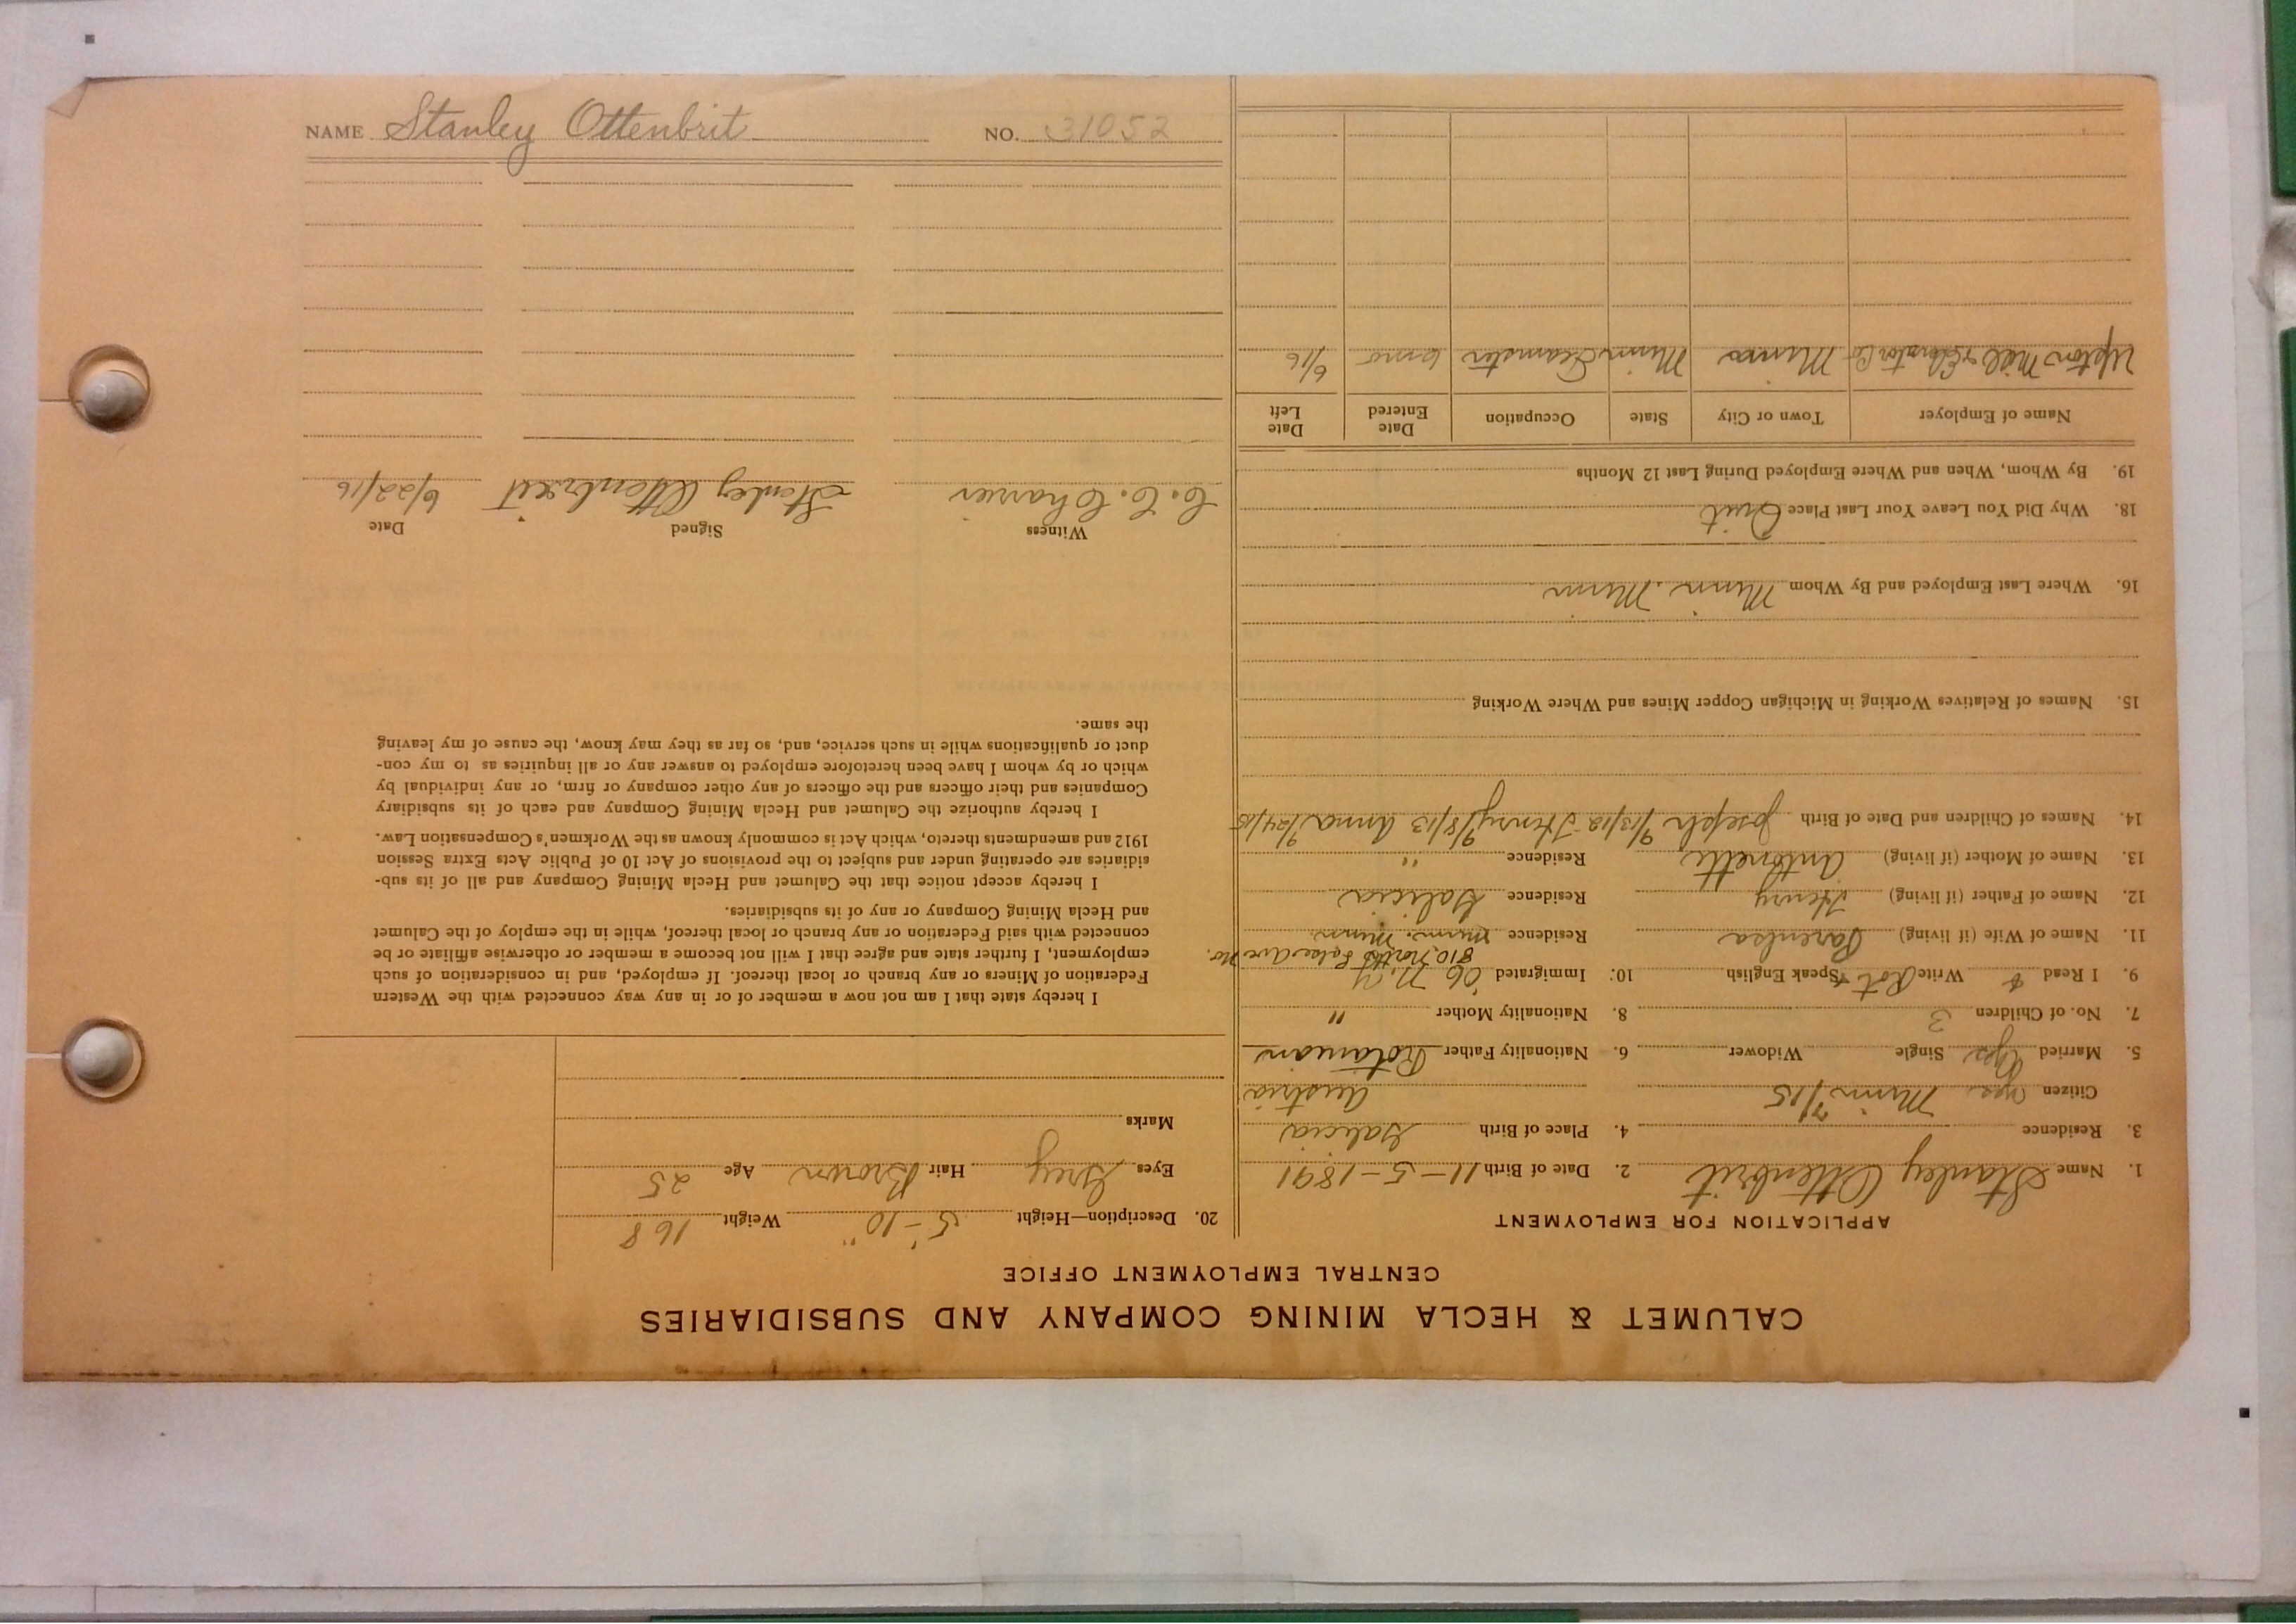 CALUMET & HECLA MINING COMPANY AND SUBSIDIARIES
CENTRAL EMPLOYMENT OFFICE
APPLICATION FOR EMPLOYMENT
1. Name Stanley Ottenbrit 2. Date of Birth 11-5-1891
3. Residence 4. Place of Birth Galicia
Citizen yes Minn 7/15 Austria
5. Married Yes Single Widower 6. Nationality Father
7. No. of Children 3 8. Nationality Mother "
9. I Read Write Speak English 10. Immigrated '06 N.Y.
810, North
11. Name of Wife (if living) Residence Minn. Minn
12. Name of Father (if living) Henry Residence Galicia
13. Name of Mother (if living) Antonette Residence "
14. Names of Children and Date of Birth Joseph 9/13/12 Henry 9/8/13 Anna 1/24/15
15. Names of Relatives Working in Michigan Copper Mines and Where Working
16. Where Last Employed and By Whom Minn. Minn
18. Why Did You Leave Your Last Place Quit
19. By Whom, When and Where Employed During Last 12 Months
Name of Employer Town or City State Occupation Date Entered Date Left
Upton Mill & Elevator Co Minn Teamster 6/16
20. Description—Height 5'-10" Weight 168
Eyes Grey Hair Brown Age 25
Marks
I hereby state that I am not now a member of or in any way connected with the Western
Federation of Miners or any branch or local thereof. If employed, and in consideration of such
employment, I further state and agree that I will not become a member or otherwise affiliate or be
connected with said Federation or any branch or local thereof, while in the employ of the Calumet
and Hecla Mining Company or any of its subsidiaries.
I hereby accept notice that the Calumet and Hecla Mining Company and all of its sub-
sidiaries are operating under and subject to the provisions of Act 10 of Public Acts Extra Session
1912 and amendments thereto, which Act is commonly known as the Workmen's Compensation Law.
I hereby authorize the Calumet and Hecla Mining Company and each of its subsidiary
Companies and their officers and the officers of any other company or firm, or any individual by
which or by whom I have been heretofore employed to answer any or all inquiries as to my con-
duct or qualifications while in such service, and, so far as they may know, the cause of my leaving
the same.
Witness Signed Date
C. C. Stanley Ottenbreit 6/22/16
NAME Stanley Ottenbrit NO. 31052